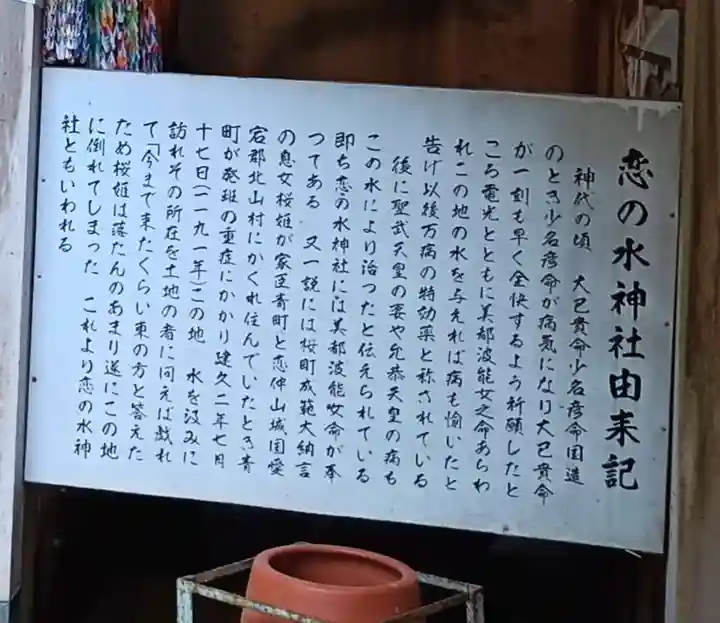 恋の水神社由来記
神代の頃　大己貴命少名彦命国造
のとき少名彦命が病気になり大己貴命
が一刻も早く全快するよう祈願したと
ころ電光とともに美都波能女之命あらわ
れこの地の水を与えれば病も愉いたと
告げ以後万病の特効薬と称されている
後に聖武天皇の妾や允恭天皇の病も
この水により治つたと伝えられている
即ち恋の水神社には美都波能女命が奉
つてある　又一説には桜町成範大納言
の息女桜姫が家臣青町と恋仲山城国愛
宕郡北山村にかくれ住んでいたとき青
町が発班の重症にかかり建久二年七月
十七日(一一九一年)この地　水を汲みに
訪れその所在を土地の者に问えば戯れ
て「今まで来たくらい東の方と答えた
ため桜姫は落たんのあまり遂にこの地
に倒れてしまった　これより恋の水神
社ともいわれる